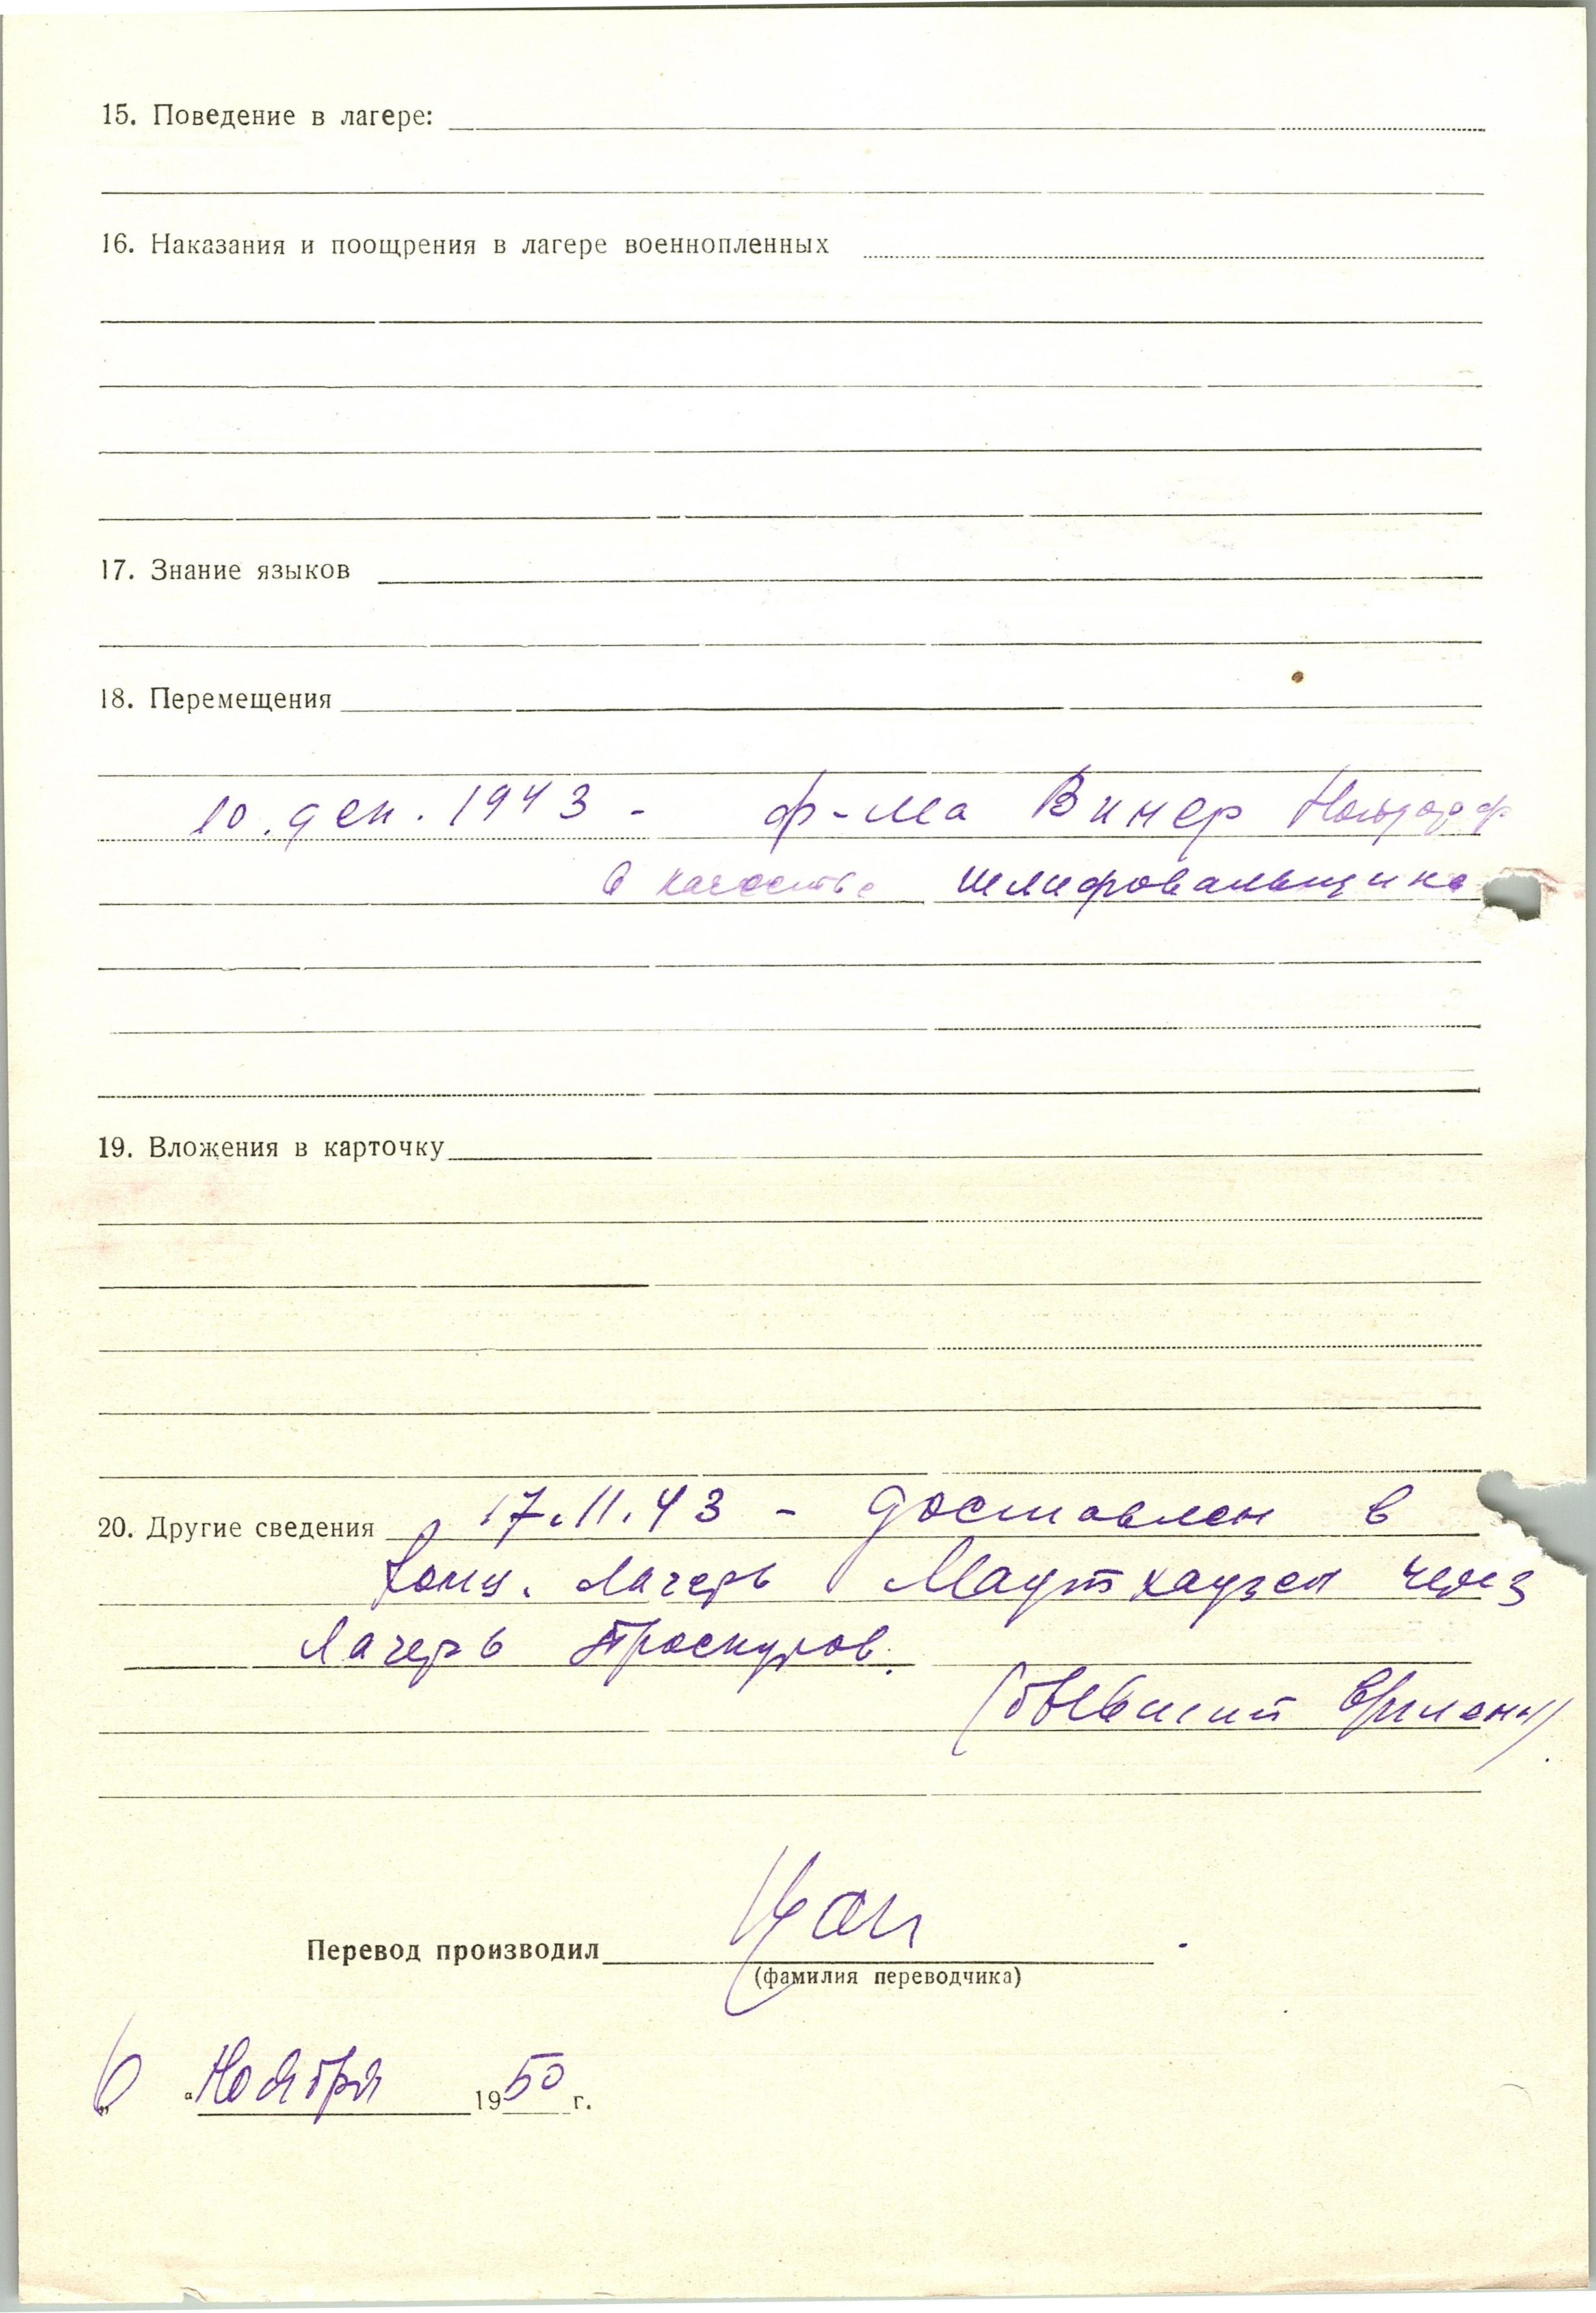 15. Поведение в лагере:
16. Наказания и поощрения в лагере военнопленных
17. Знание языков
18. Перемещения
10. дек. 1943 - ф-ма Винер
в качестве шлифовальщика
19. Вложения в карточку
20. Другие сведения 17.11.43 - доставлен в
Конц. лагерь Маутхаузен через
лагерь Проскуров.
(бывший
Перевод производил
(фамилия переводчика)
6 " Ноября 1950 г.